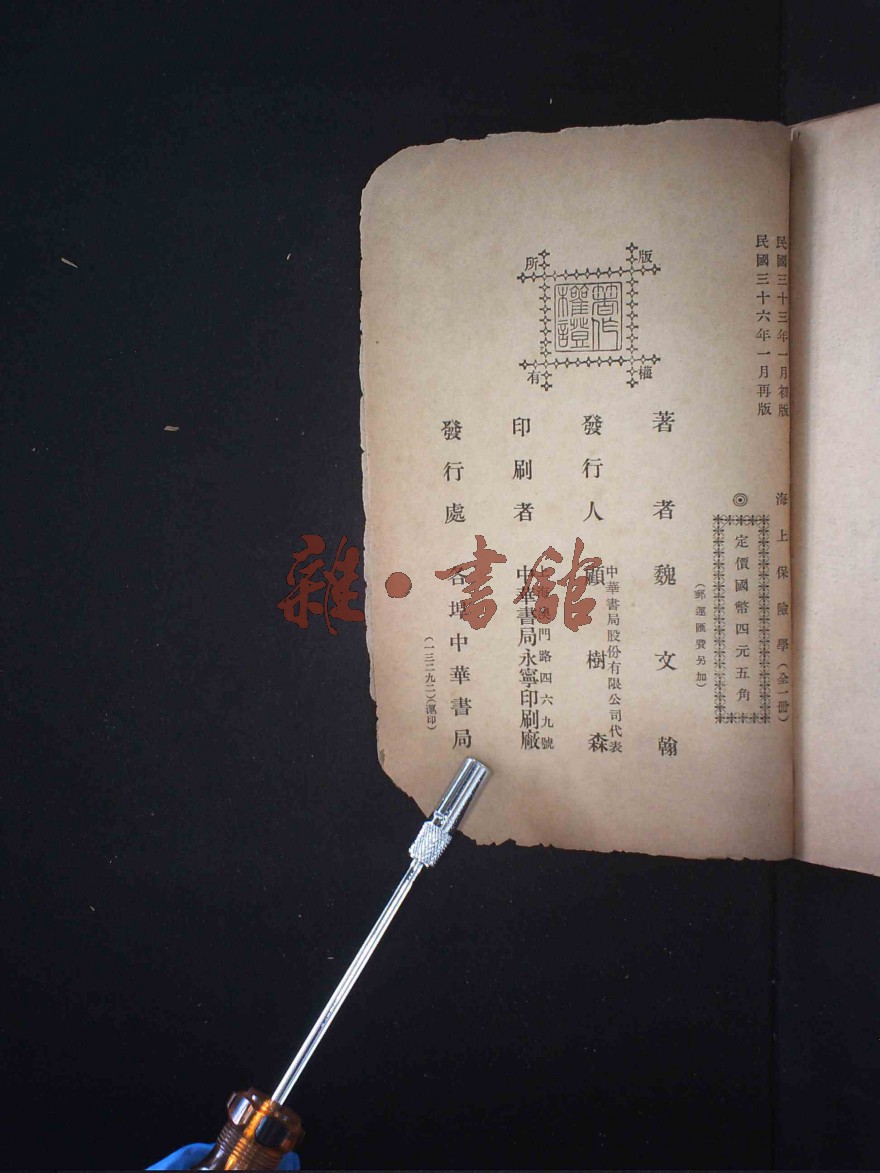 民國三十三年一月初版
民國三十六年一月再版
海上保險學（全一冊）
◎定價國幣四元五角
（郵運匯費另加）
著者 魏文翰
發行人 中華書局股份有限公司代表 顧樹森
印刷者 上海澳門路四六九號 中華書局永寧印刷廠
發行處 各埠中華書局
（一三二九二）（滬印）
版權所有
著作權證
雜·書館